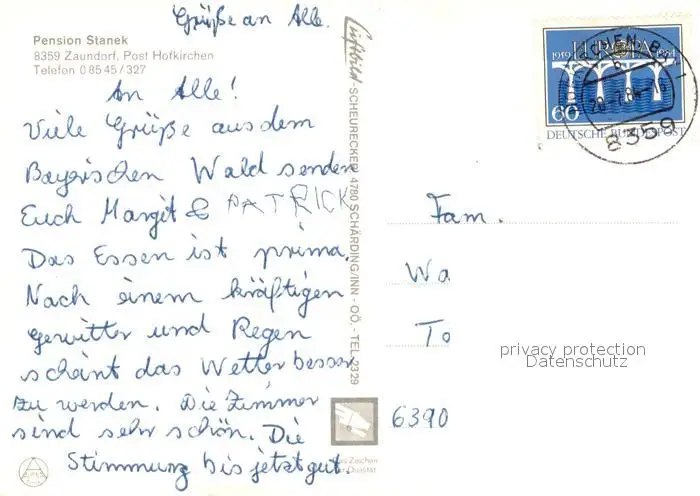 Grüße an Alle.
Pension Stanek
8359 Zaundorf, Post Hofkirchen
Telefon 0 85 45 / 327
An Alle!
Viele Grüße aus dem
Bayrischen Wald senden
Euch Margit & PATRICK
Das Essen ist prima.
Nach einem kräftigen
Gewitter und Regen
scheint das Wetter besser
zu werden. Die Zimmer
sind sehr schön. Die
Stimmung bis jetzt gut.
Luftbild-SCHEURECKER, 4780 SCHÄRDING/INN - OÖ. - TEL. 3329
Das Zeichen
der Qualität
1959 1984
60
DEUTSCHE BUNDESPOST
8359
Fam.
Wa
To
6390
privacy protection
Datenschutz